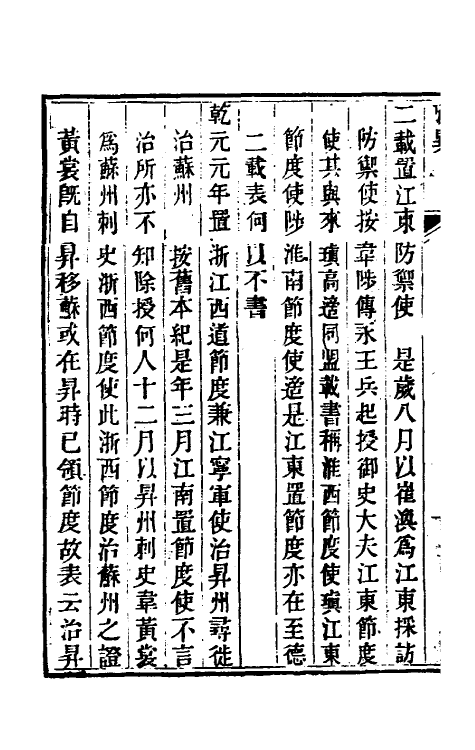 二載置江東防禦使　是歲八月以崔渙爲江東採訪
防禦使按韋陟傳永王兵起授御史大夫江東節度
使其與來瑱高適同盟載書稱淮西節度使瑱江東
節度使陟淮南節度使適是江東置節度亦在至德
二載表何以不書
乾元元年置浙江西道節度兼江寧軍使治昇州尋徙
治蘇州　按舊本紀是年三月江南置節度使不言
治所亦不知除授何人十二月以昇州刺史韋黃裳
爲蘇州刺史浙西節度使此浙西節度治蘇州之證
黃裳旣自昇移蘇或在昇時已領節度故表云治昇